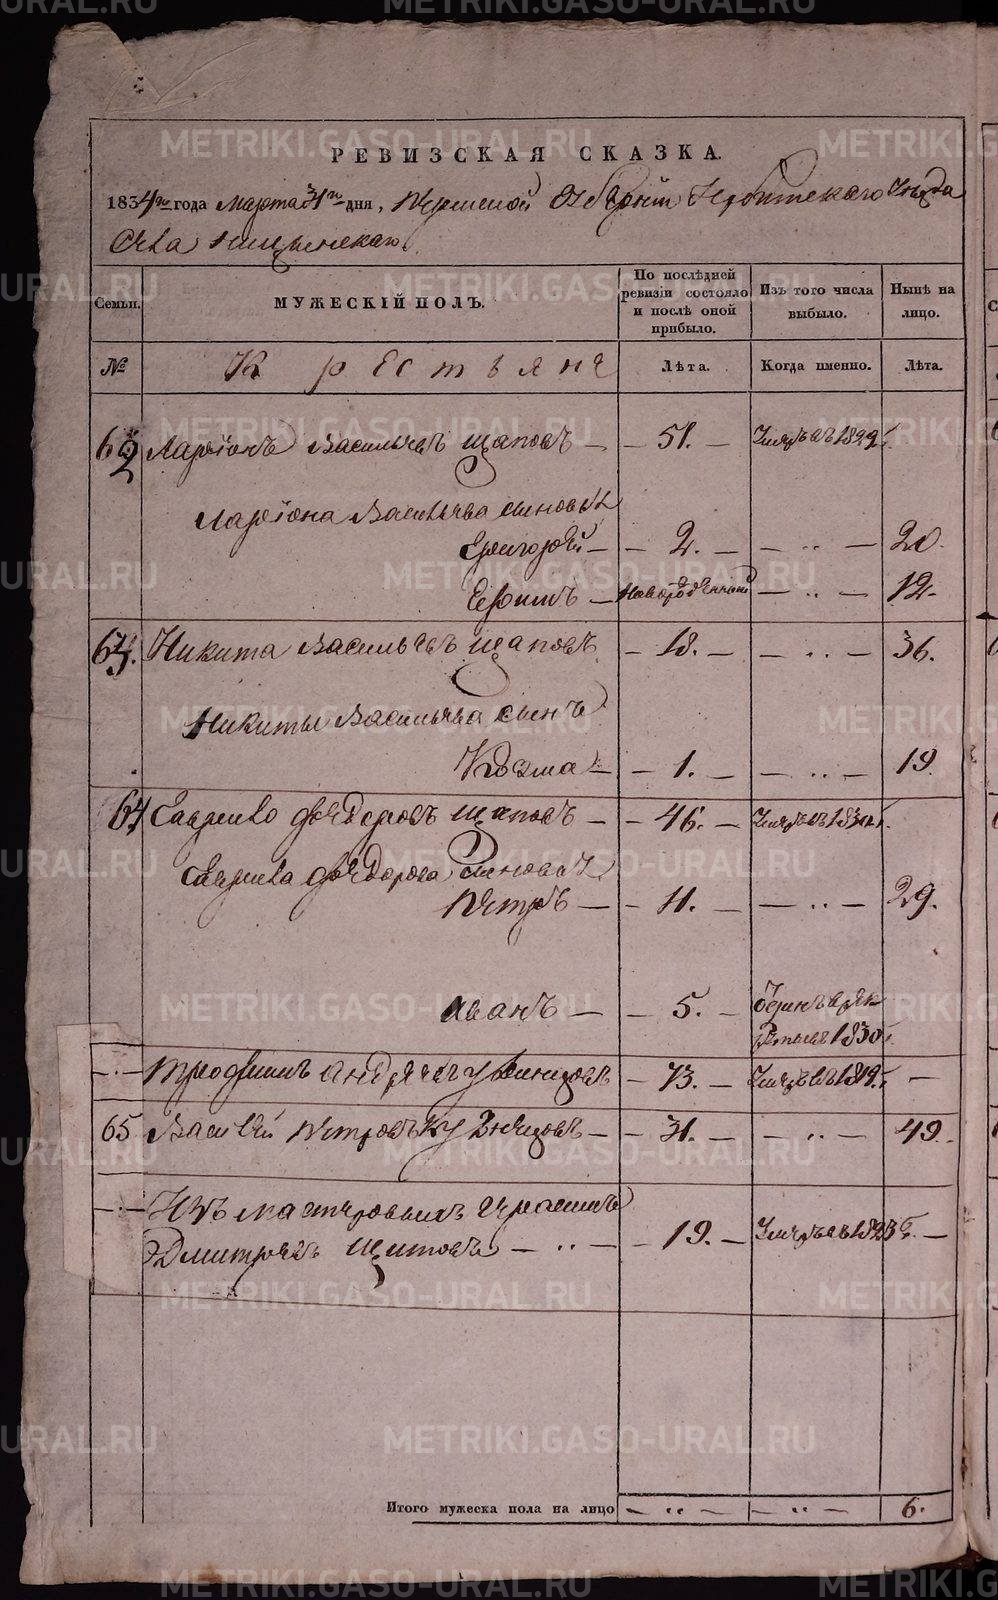 РЕВИЗСКАЯ СКАЗКА.
1834го года Марта 31го дня, Пермской Губернии Ирбитского Уезда
Села Ницынскаго
Семьи. МУЖЕСКІЙ ПОЛЪ. По послѣдней ревизіи состояло и послѣ оной прибыло. Изъ того числа выбыло. Нынѣ на лицо.
№ Крестьяне Лѣта. Когда именно. Лѣта.
62 Ларіонъ Васильевъ Щаповъ — 51. — Умеръ въ 1822
Ларіона Васильева сыновья
Григорей — 2. — — „ — 20.
Ефимъ — Новорожденный — „ — 12.
63. Никита Васильевъ Щаповъ — 18. — — „ — 36.
Никиты Васильева сынъ
Козма — 1. — — „ — 19.
64 Гаврило Федоровъ Щаповъ — 46. — Умеръ въ 1831
Гаврила Федорова сыновья
Петръ — 11. — — „ — 29.
Иванъ — 5. —
1830
Трофимъ Андреевъ — 73. — Умеръ въ 1819. —
65 Василей Петровъ Кузнецовъ — 31. — — „ — 49.
Изъ мастеровыхъ Герасимъ
Дмитревъ Щитовъ — „ — 19. — Умеръ въ —
Итого мужеска пола на лицо — „ — — „ — 6.